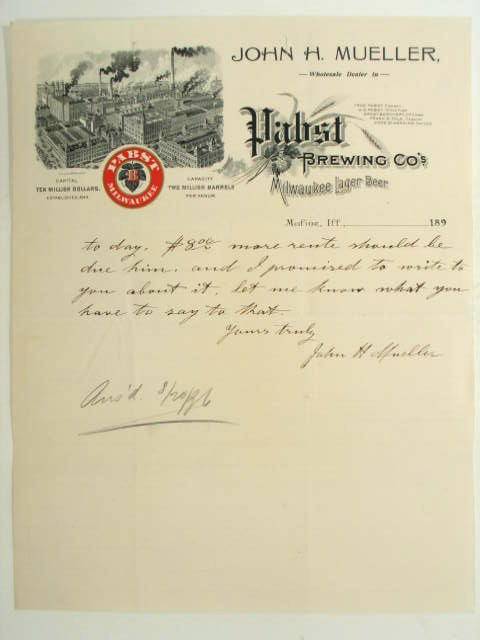 JOHN H. MUELLER,
Wholesale Dealer in
Pabst
BREWING CO'S
Milwaukee Lager Beer
PABST
B
MILWAUKEE
CAPITAL
TEN MILLION DOLLARS.
CAPACITY
TWO MILLION BARRELS
PER ANNUM.
189
to day. $8.00 more rente should be
due him. and I promised to write to
you about it. let me know what you
have to say to that.
Yours truly
John H Mueller
Ans'd. 8/20/96